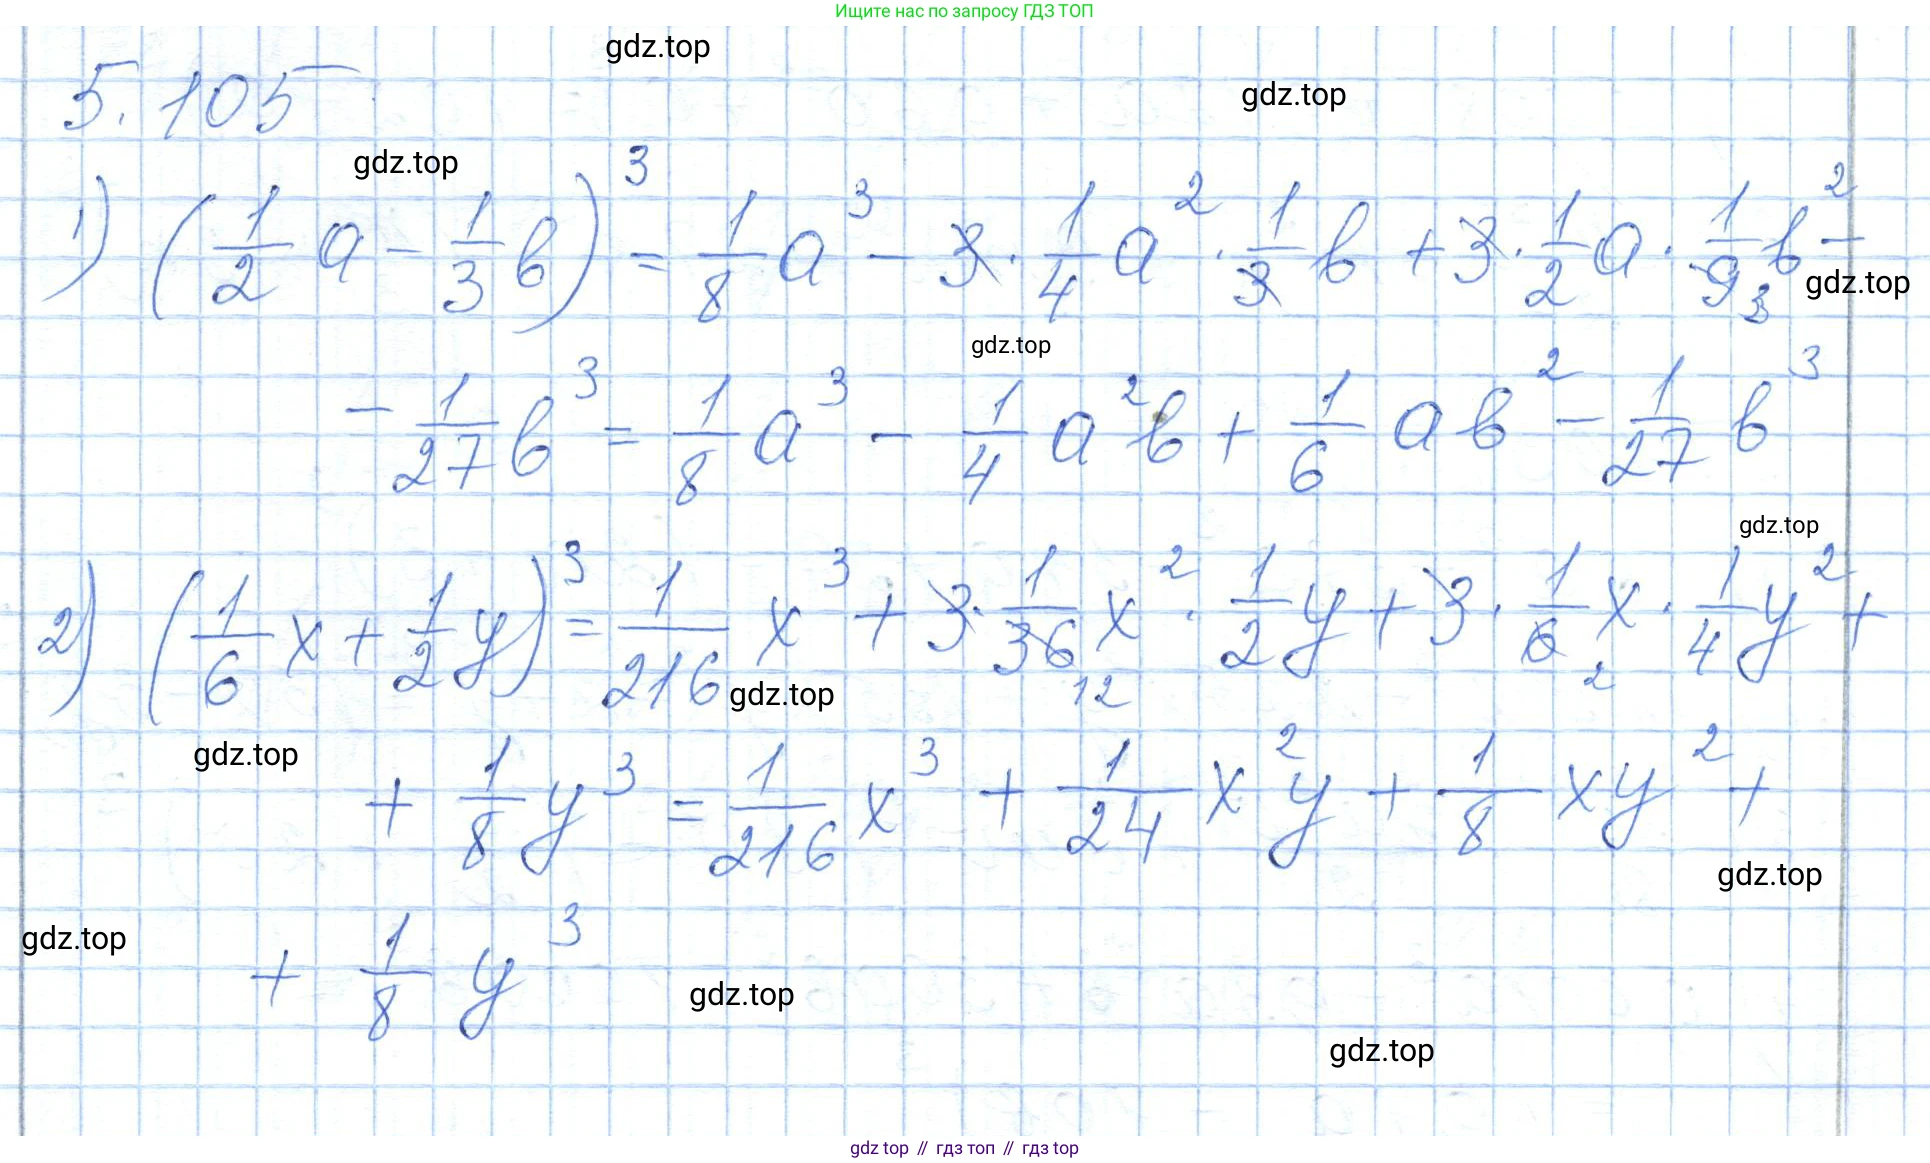 Ищите нас по запросу ГДЗ ТОП
gdz.top
5.105
gdz.top
gdz.top
1) (1/2 a - 1/3 b)³ = 1/8 a³ - 3 · 1/4 a² · 1/3 b + 3 · 1/2 a · 1/9 3 b² -
gdz.top
gdz.top
- 1/27 b³ = 1/8 a³ - 1/4 a²b + 1/6 ab² - 1/27 b³
gdz.top
2) (1/6 x + 1/2 y)³ = 1/216 x³ + 3 · 1/36 12 x² · 1/2 y + 3 · 1/6 2 x · 1/4 y² +
gdz.top
gdz.top
+ 1/8 y³ = 1/216 x³ + 1/24 x²y + 1/8 xy² +
gdz.top
gdz.top
+ 1/8 y³
gdz.top
gdz.top
gdz top // гдз топ // гдз top